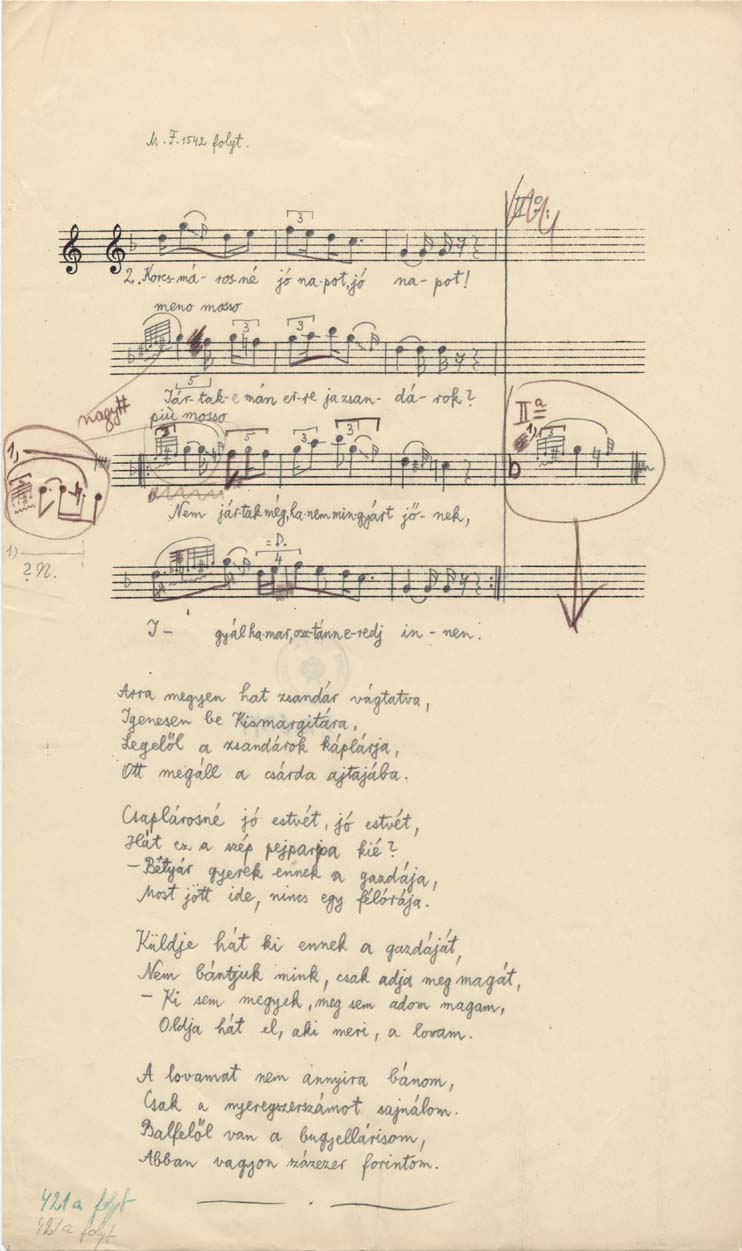 M. F. 1542 folyt.
IIa.
3
2. Korcs-má-ros-né jó na-pot, jó na-pot!
meno mosso
3 3
5
Jár-tak-e mán er-re ja zsan-dá-rok?
nagy
più mosso
IIa
1)
1) 3 5 3 3 3
Nem jár-tak még, ha-nem min-gyárt jő-nek,
1)
? N.
= 4
I- gyál ha-mar, osz-tánn e-redj in-nen.
Arra megyen hat zsandár vágtatva,
Igenesen be Kismargitára,
Legelől a zsandárok káplárja,
Ott megáll a csárda ajtajába.
Csaplárosné jó estvét, jó estvét,
Hát ez a szép pejparipa kié?
– Bëtyár gyerek ennek a gazdája,
Most jött ide, nincs egy félórája.
Küldje hát ki ennek a gazdáját,
Nem bántjuk mink, csak adja meg magát,
– Ki sem megyek, meg sem adom magam,
Oldja hát el, aki meri, a lovam.
A lovamat nem annyira bánom,
Csak a nyeregszerszámot sajnálom.
Balfelől van a bugyellárisom,
Abban vagyon százezer forintom.
421a folyt
421a folyt